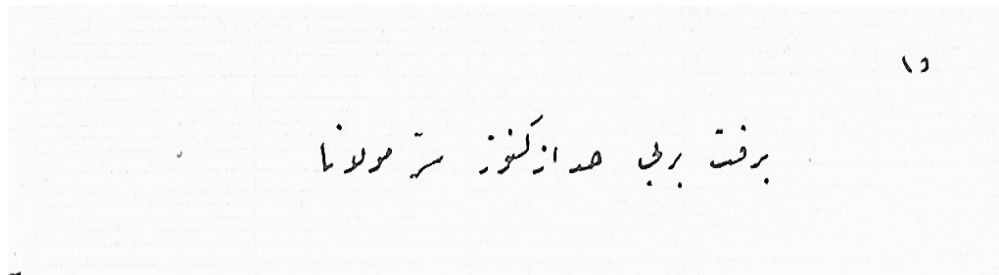 ۱۵
برفت بربی حد از کنوز سرّ مولانا